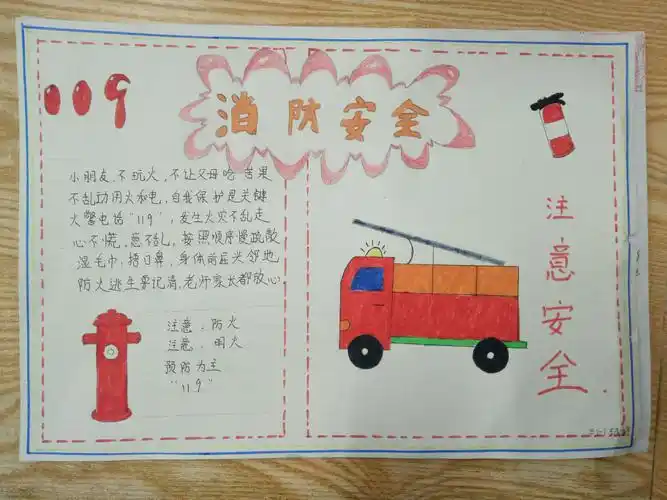 119
消防安全
小朋友,不玩火,不让父母吃苦果
不乱动用火和电,自我保护是关键
火警电话"119",发生火灾不乱走
心不慌,意不乱,按照顺序慢疏散
湿毛巾,捂口鼻,身体前屈
防火逃生要记清,老师家长都放心!
注意:防火
注意:明火
预防为主
"119"
注意安全